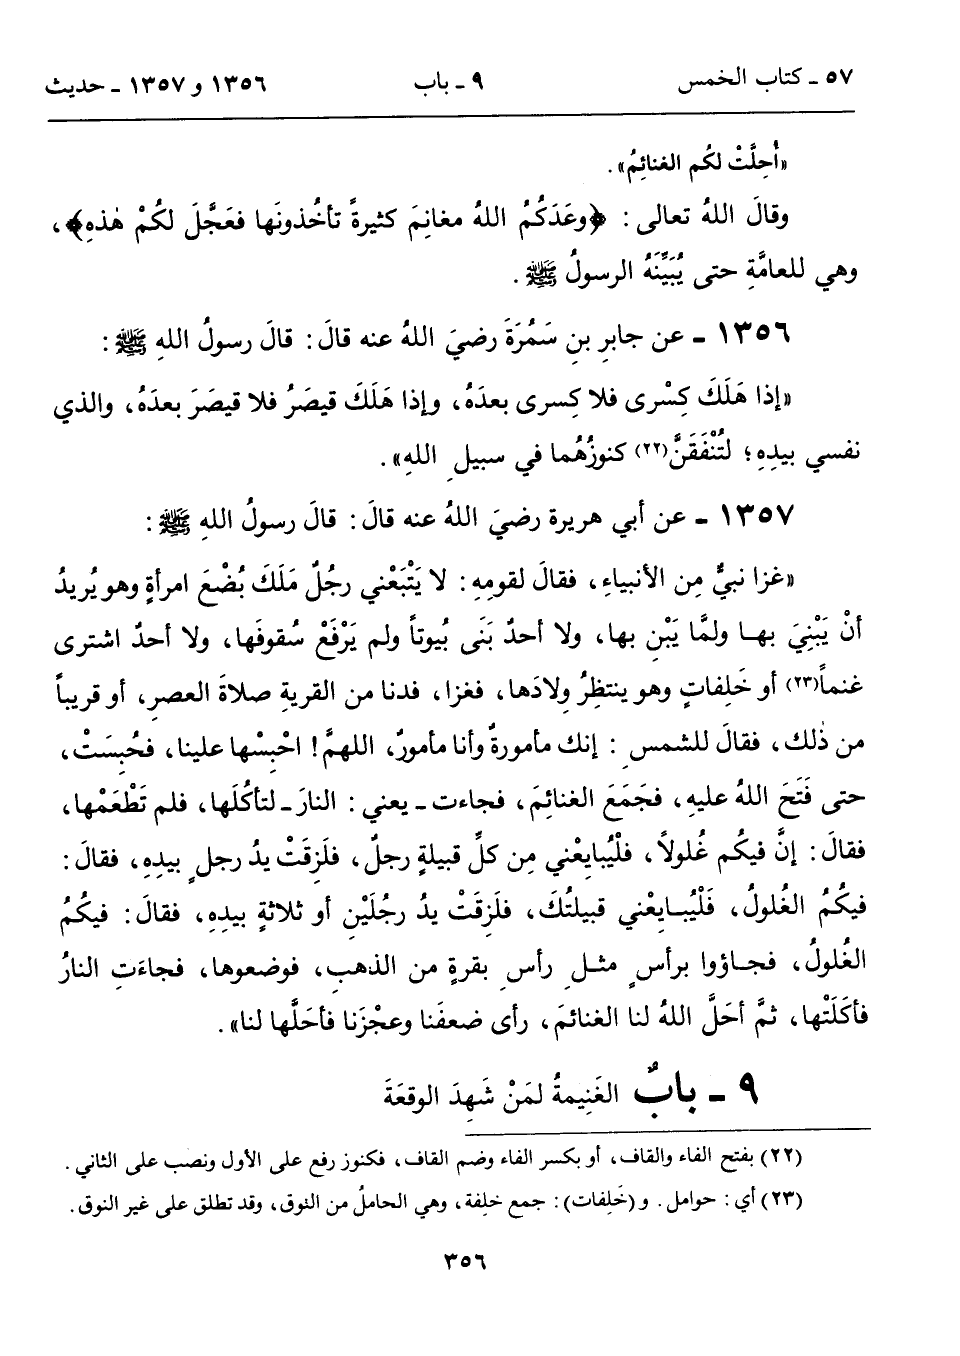 ٥٧ ـ كتاب الخمس ٩ ـ باب ١٣٥٦ و ١٣٥٧ ـ حديث
«أُحِلَّتْ لكُم الغنائِمُ».
وقالَ اللهُ تعالى: ﴿وعَدَكُمُ اللهُ مغانِمَ كثيرةً تأخُذونَها فعَجَّلَ لكُمْ هٰذهِ﴾،
وهي للعامَّةِ حتى يُبَيِّنَهُ الرسولُ ﷺ.
١٣٥٦ ـ عن جابرِ بنِ سَمُرَةَ رضيَ اللهُ عنه قالَ: قالَ رسولُ اللهِ ﷺ:
«إذا هَلَكَ كِسْرى فلا كِسرى بعدَهُ، وإذا هَلَكَ قيصَرُ فلا قيصَرَ بعدَهُ، والذي
نفسي بيدِهِ؛ لتُنْفَقَنَّ(٢٢) كنوزُهُما في سبيلِ اللهِ».
١٣٥٧ ـ عن أبي هريرة رضيَ اللهُ عنه قالَ: قالَ رسولُ اللهِ ﷺ:
«غزا نبيٌّ مِن الأنبياءِ، فقالَ لقومِهِ: لا يَتْبَعْني رجُلٌ مَلَكَ بُضْعَ امرأةٍ وهو يُريدُ
أنْ يَبْنِيَ بهـا ولمَّا يَبْنِ بها، ولا أحدٌ بَنَى بُيوتاً ولم يَرْفَعْ سُقوفَها، ولا أحدٌ اشترى
غنماً(٢٣) أو خَلِفاتٍ وهو ينتظِرُ وِلادَها، فغزا، فدنا من القريةِ صلاةَ العصرِ، أو قريباً
من ذٰلك، فقالَ للشمسِ: إنك مأمورةٌ وأنا مأمورٌ، اللهمَّ! احْبِسْها علينا، فحُبِسَتْ،
حتى فَتَحَ اللهُ عليهِ، فجَمَعَ الغنائِمَ، فجاءت ـ يعني: النارَ ـ لتأكُلَها، فلم تَطْعَمْها،
فقالَ: إنَّ فيكُم غُلولاً، فلْيُبايِعْني مِن كلِّ قبيلةٍ رجلٌ، فلَزِقَتْ يدُ رجلٍ بيدِهِ، فقالَ:
فيكُمُ الغُلولُ، فَلْيُبـايِعْني قبيلتُكَ، فلَزِقَتْ يدُ رجُلَيْنِ أو ثلاثةٍ بيدِهِ، فقالَ: فيكُمُ
الغُلولُ، فجـاؤوا برأسٍ مثـلِ رأسِ بقرةٍ من الذهبِ، فوضعوها، فجاءَتِ النارُ
فأكَلَتْها، ثمَّ أحَلَّ اللهُ لنا الغنائمَ، رأى ضعفَنا وعجْزَنا فأحَلَّها لنا».
٩ ـ بابٌ الغَنِيمةُ لمَنْ شَهِدَ الوقعَةَ
(٢٢) بفتح الفاء والقاف، أو بكسر الفاء وضم القاف، فكنوز رفع على الأول ونصب على الثاني.
(٢٣) أي: حوامل. و (خَلِفات): جمع خلِفة، وهي الحاملُ من النوق، وقد تطلق على غير النوق.
٣٥٦